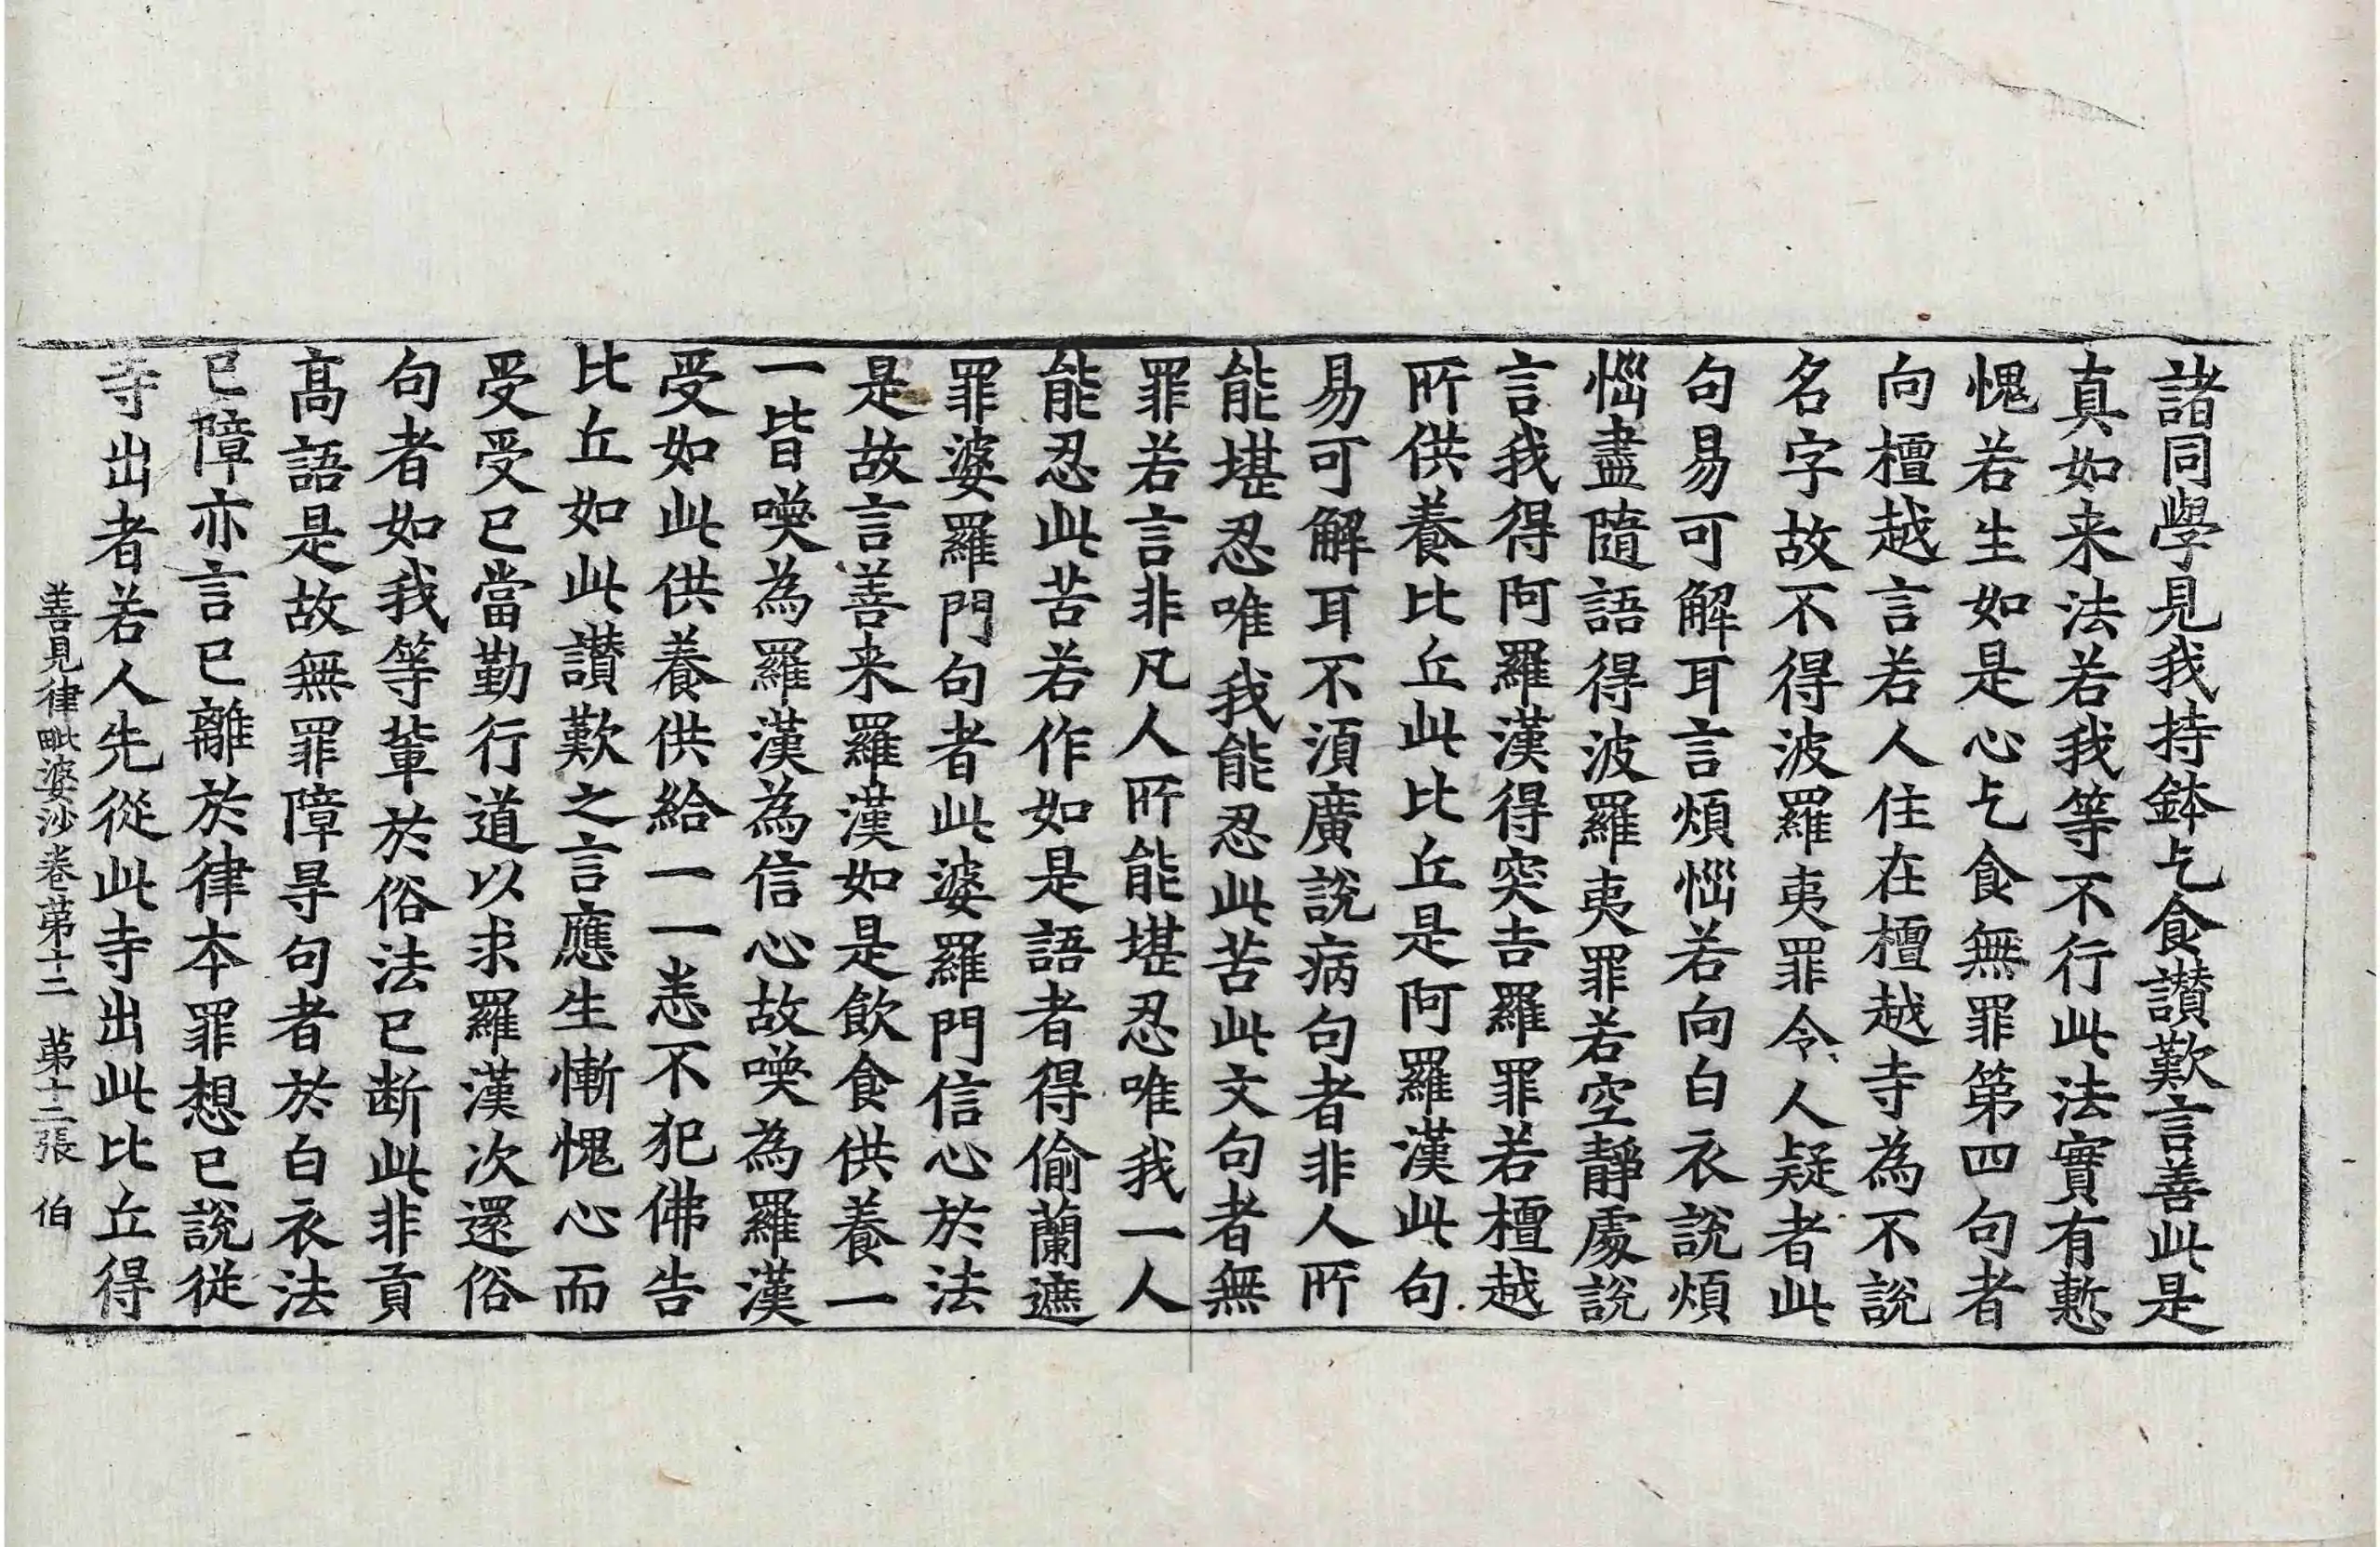 諸同學見我持鉢乞食讃歎言善此是
真如来法若我等不行此法實有慙
愧若生如是心乞食無罪第四句者
向檀越言若人住在檀越寺為不說
名字故不得波羅夷罪令人疑者此
句易可解耳言煩惱若向白衣說煩
惱盡隨語得波羅夷罪若空靜處說
言我得阿羅漢得突吉羅罪若檀越
所供養比丘此比丘是阿羅漢此句
易可解耳不湏廣說病句者非人所
能堪忍唯我能忍此苦此文句者無
罪若言非凡人所能堪忍唯我一人
能忍此苦若作如是語者得偷蘭遮
罪婆羅門句者此婆羅門信心於法
是故言善来羅漢如是飲食供養一
一皆喚為羅漢為信心故喚為羅漢
受如此供養供給一一悉不犯佛告
比丘如此讃歎之言應生慚愧心而
受受已當勤行道以求羅漢次還俗
句者如我等輩於俗法已断此非貢
髙語是故無罪障㝵句者於白衣法
已障亦言已離於律本罪想已說從
寺出者若人先從此寺出此比丘得
善見律毗婆沙卷第十二　第十二張　伯